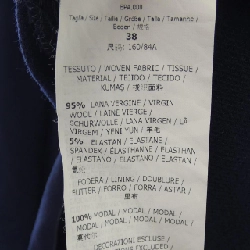 Taglia / Size / Taille / Größe / Talla / Tamanho /
38
尺码: 160/84A
TESSUTO / WOVEN FABRIC / TISSUE /
MATERIAL / TEJIDO / TECIDO /
KUMAŞ /
95% LANA VERGINE / VIRGIN
WOOL / LAINE VIERGE /
SCHURWOLLE / LANA VIRGEN / LÃ
VIRGEM / YENİ YÜN / 羊毛
5% ELASTAN / ELASTANE /
SPANDEX / ÉLASTHANNE / ELASTHAN
/ ELASTANO / ELASTANO / ELASTAN /
FODERA / LINING / DOUBLURE /
FUTTER / FORRO / FORRA / ASTAR /
里布
100% MODAL / MODAL / MODAL /
MODAL / MODAL / MODAL / MODAL /
DECORAZIONI ESCLUSE /